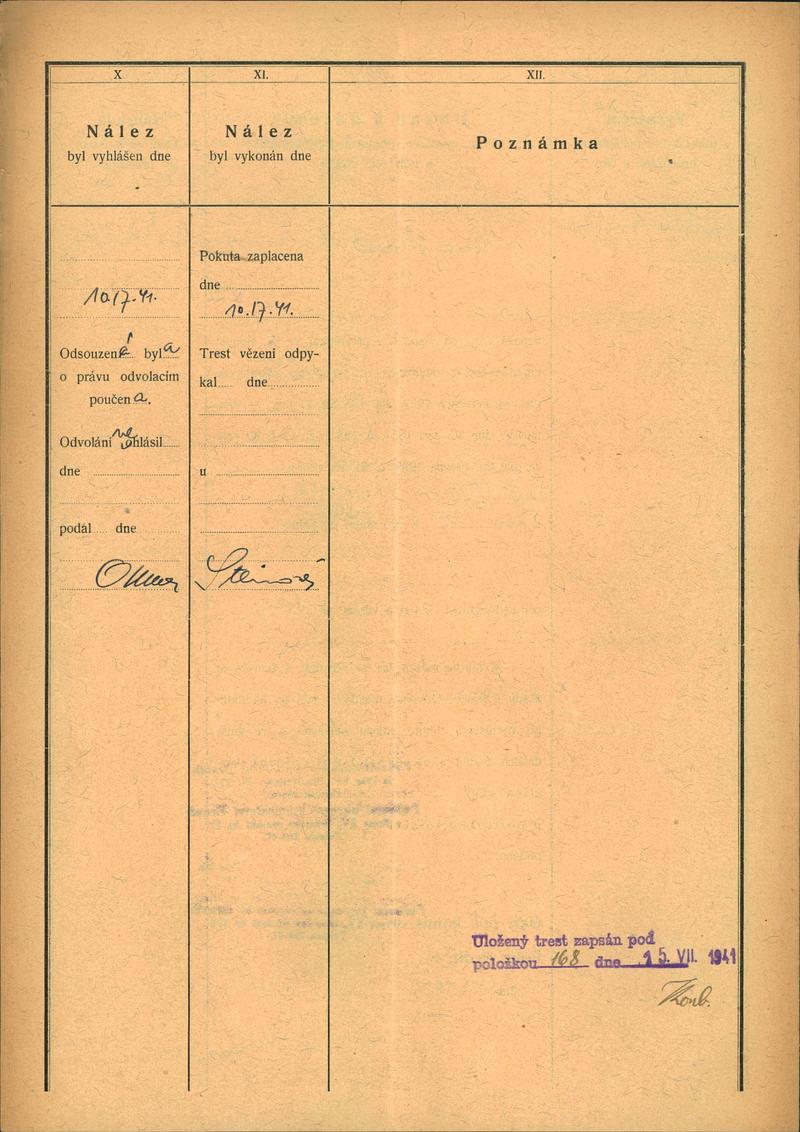 X
Nález
byl vyhlášen dne
10/7.41.
Odsouzená byla
o právu odvolacím
poučena.
Odvolání neohlásil
dne
podál dne
XI.
Nález
byl vykonán dne
Pokuta zaplacena
dne
10./7.41.
Trest vězení odpy-
kal dne
u
XII.
Poznámka
Uložený trest zapsán pod
položkou 168 dne 15. VII. 1941